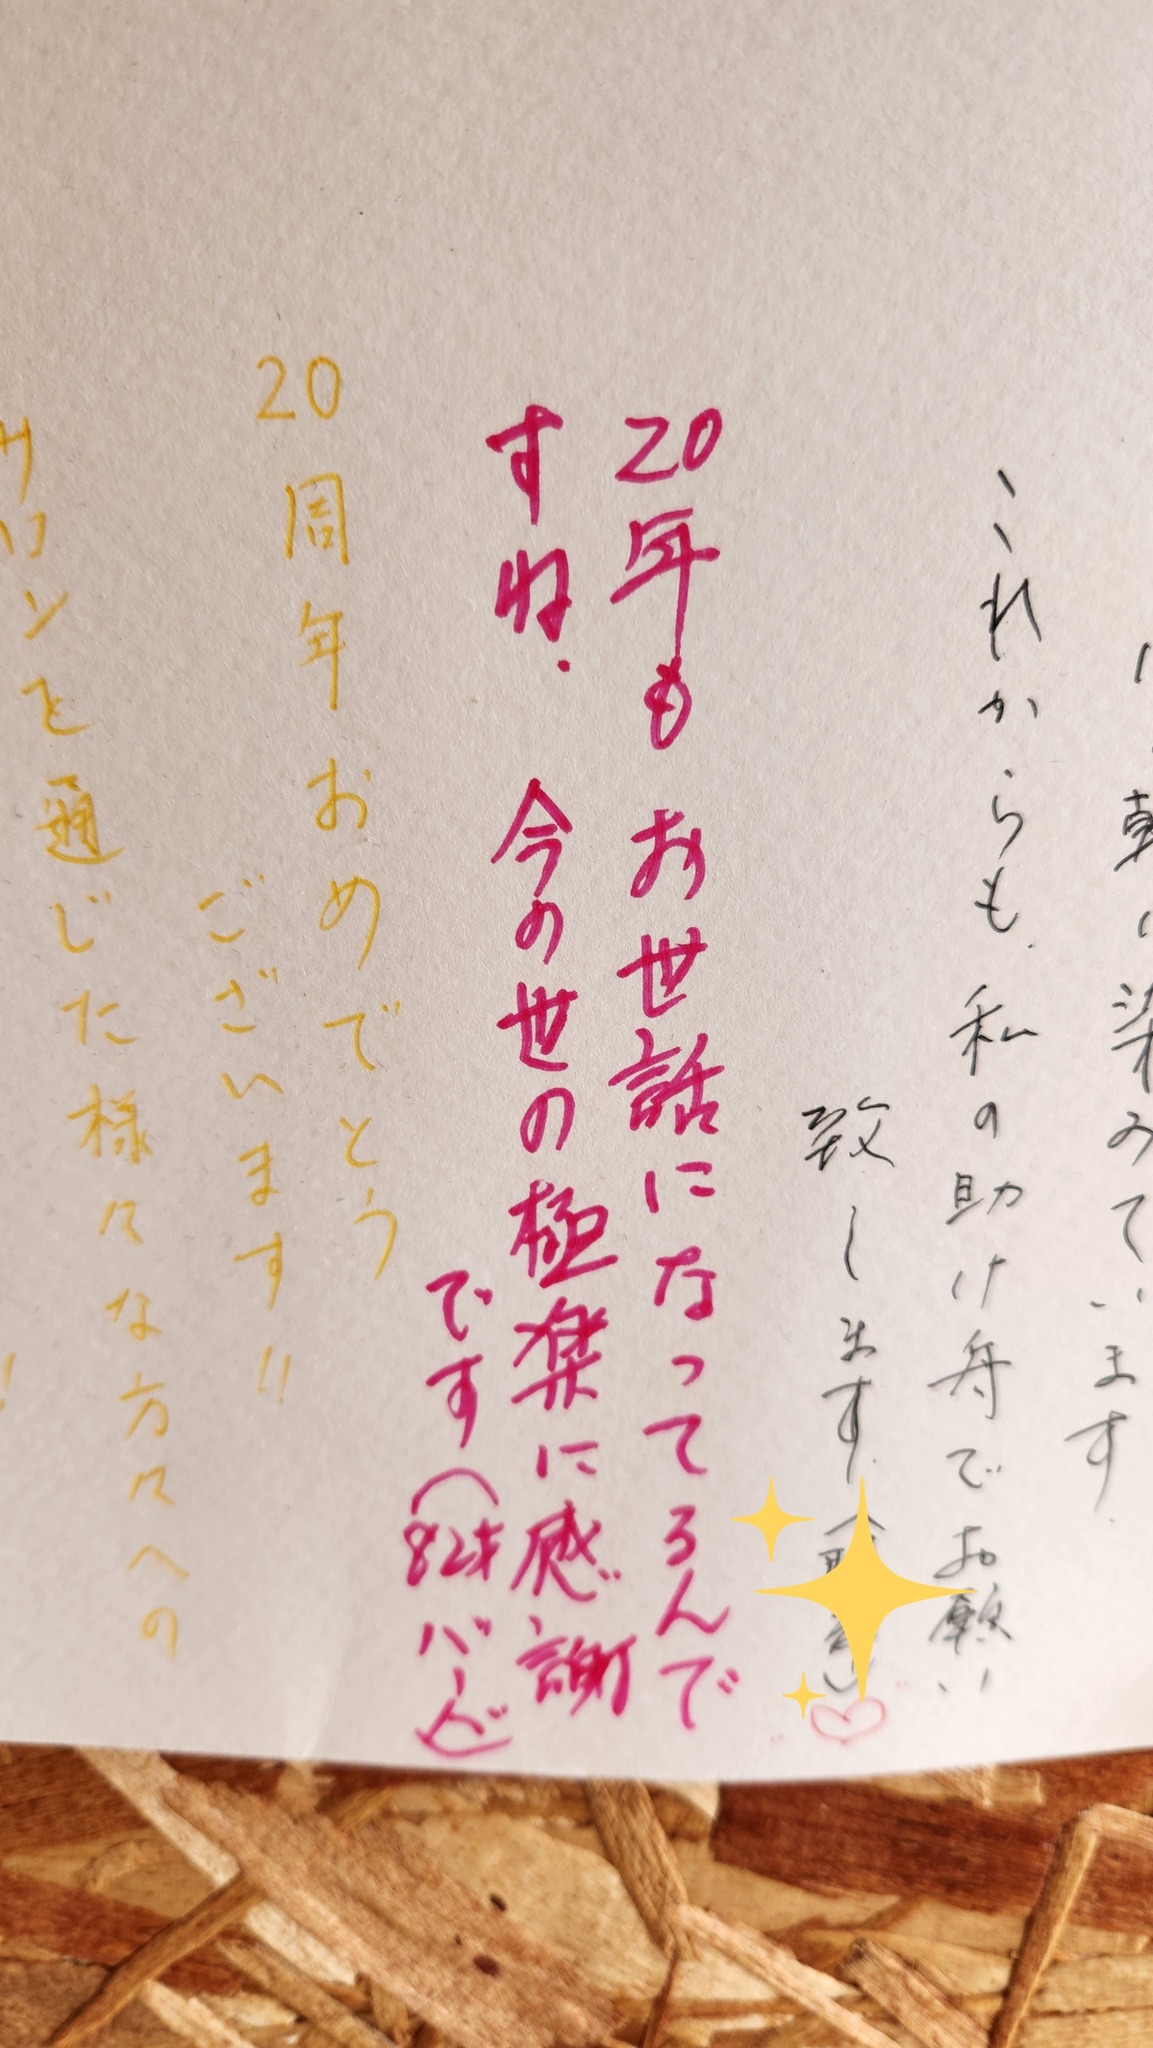 に染みています
これからも、私の助け舟でお願い
致します。
20年も お世話になってるんで
すね. 今の世の極楽に感謝
です(82才 バーバ)
20周年おめでとう
ございます!!
サロンを通じた様々な方々への